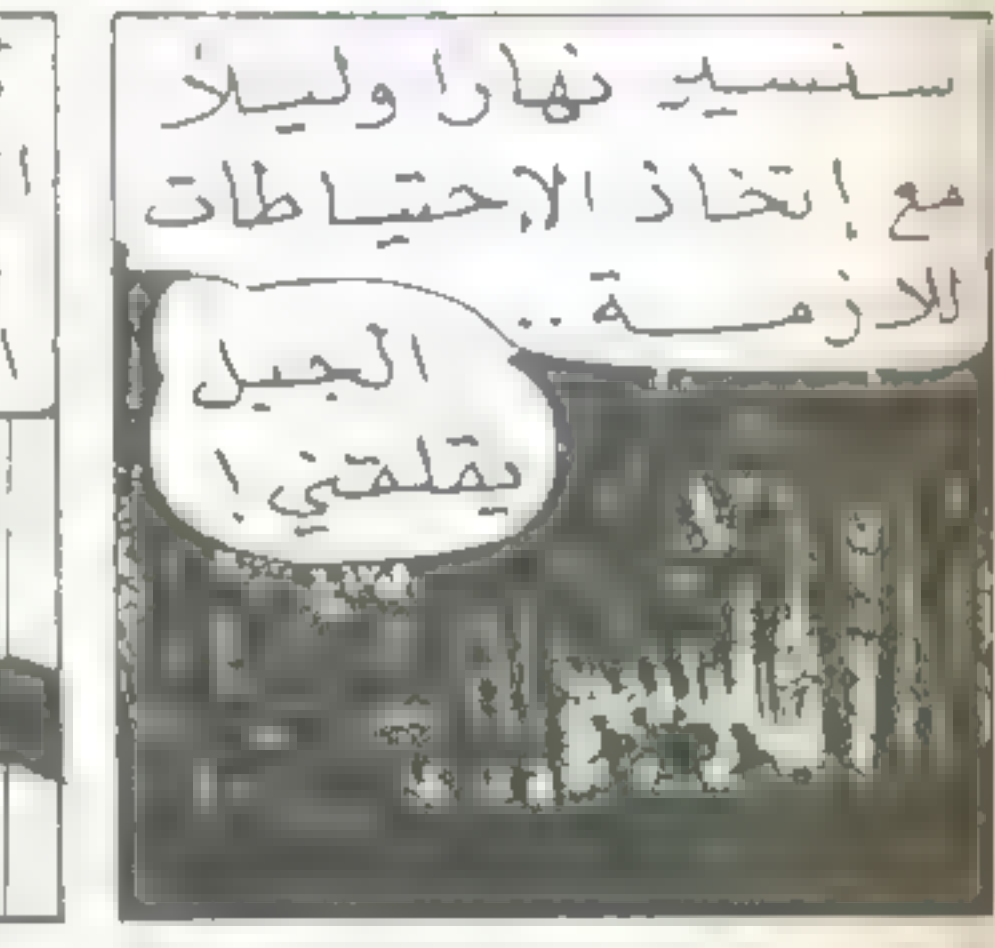 سنسير نهارا وليلا
مع إتخاذ الإحتياطات
للازمة ..
الجبل
يقلقني !